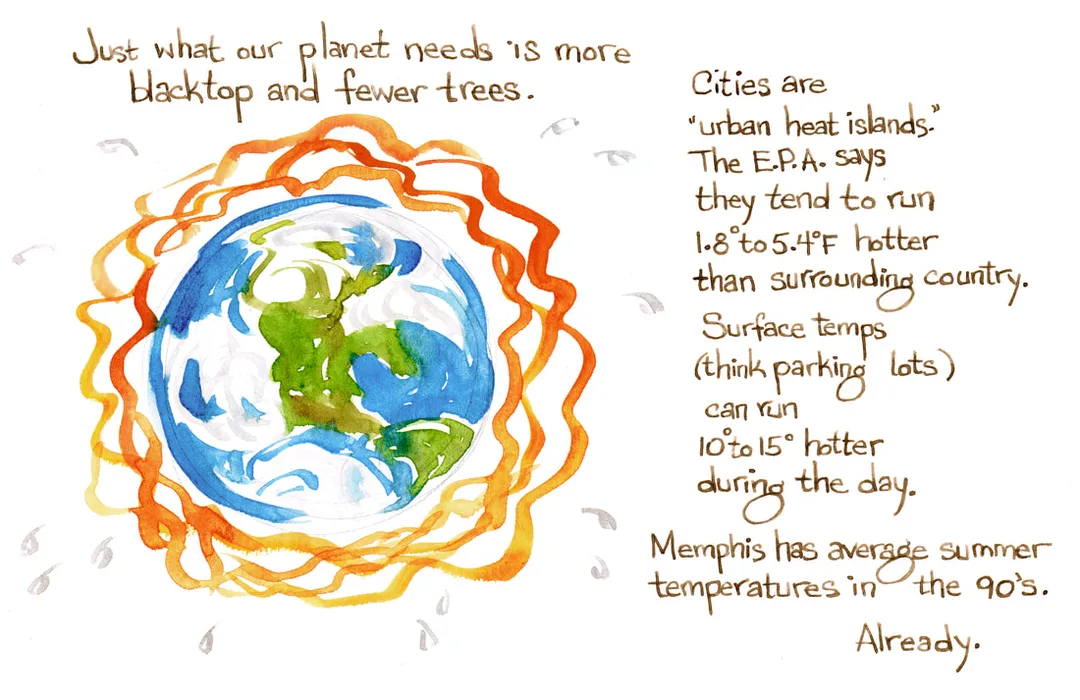 Just what our planet needs is more
blacktop and fewer trees.
Cities are
"urban heat islands."
The E.P.A. says
they tend to run
1.8° to 5.4°F hotter
than surrounding country.
Surface temps
(think parking lots)
can run
10° to 15° hotter
during the day.
Memphis has average summer
temperatures in the 90's.
Already.